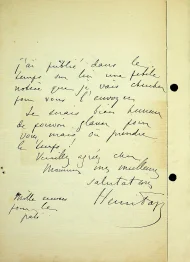 j'ai publié dans le
temps sur lui une petite
notice que je vais chercher
pour vous l'envoyer.
Je serais bien heureux
de pouvoir glaner pour
vous mais où prendre
le temps!
Veuillez agréer cher
Monsieur mes meilleures
salutations
Mille
pour le